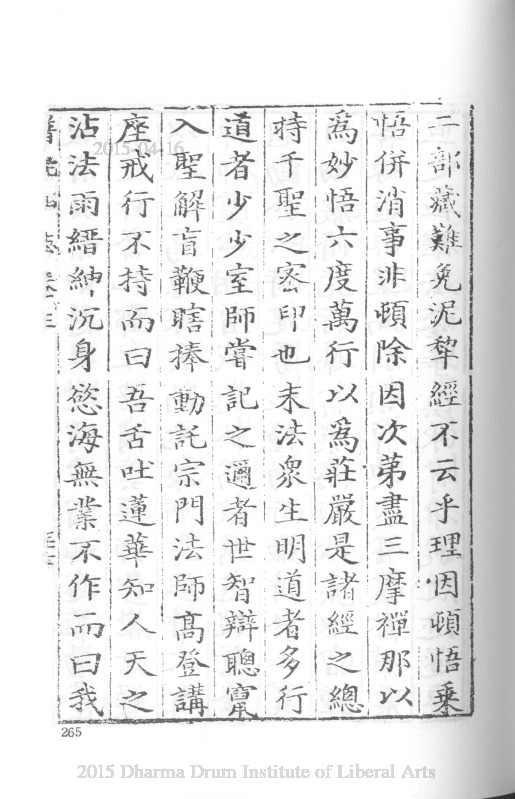 二部藏難免泥犂經不云乎理因頓悟乗
悟併消事非頓除因次第盡三摩禪那以
爲妙悟六度萬行以爲莊嚴是諸經之總
持千聖之宻印也末法衆生明道者多行
道者少少室師嘗記之邇者世智辯聰竄
入聖解盲鞭瞎捧動託宗門法師髙登講
座戒行不持而曰吾舌吐蓮華知人天之
沾法雨縉紳沉身慾海無業不作而曰我
265
2015-04-16
2015 Dharma Drum Institute of Liberal Arts